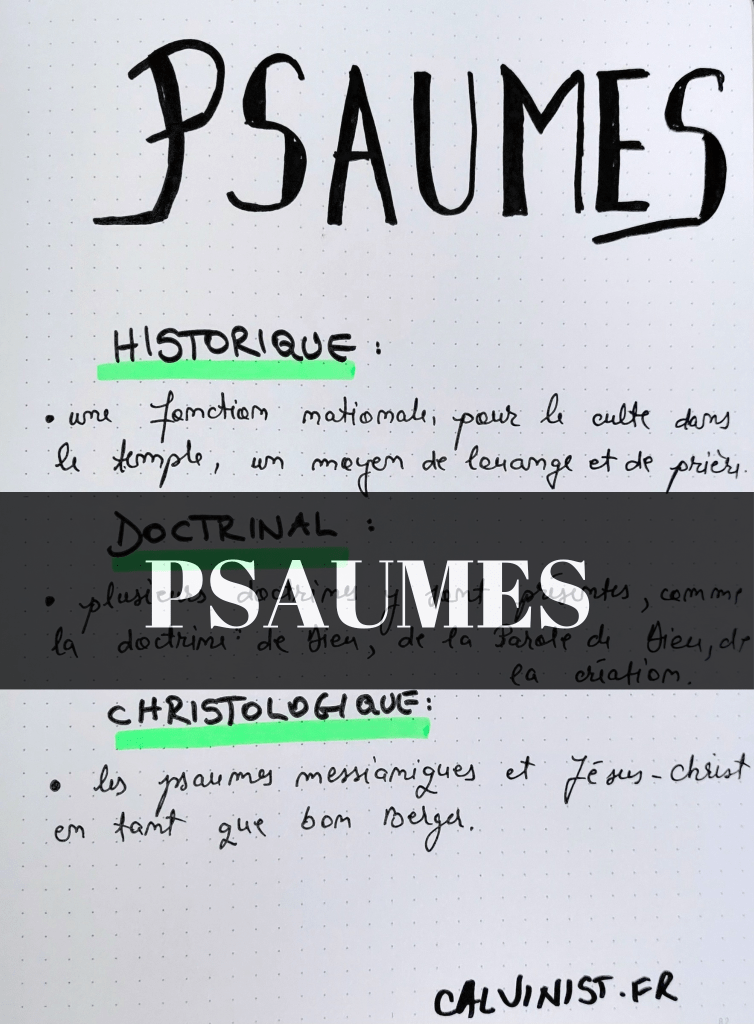 PSAUMES
HISTORIQUE :
• une fonction nationale, pour le culte dans
le temple, un moyen de louange et de prière.
DOCTRINAL :
PSAUMES
• plusieurs doctrines y sont présentes, comme
la doctrine de Dieu, de la Parole de Dieu, de
la création.
CHRISTOLOGIQUE :
• les psaumes messianiques et Jésus-Christ
en tant que bon Berger.
CALVINIST.FR